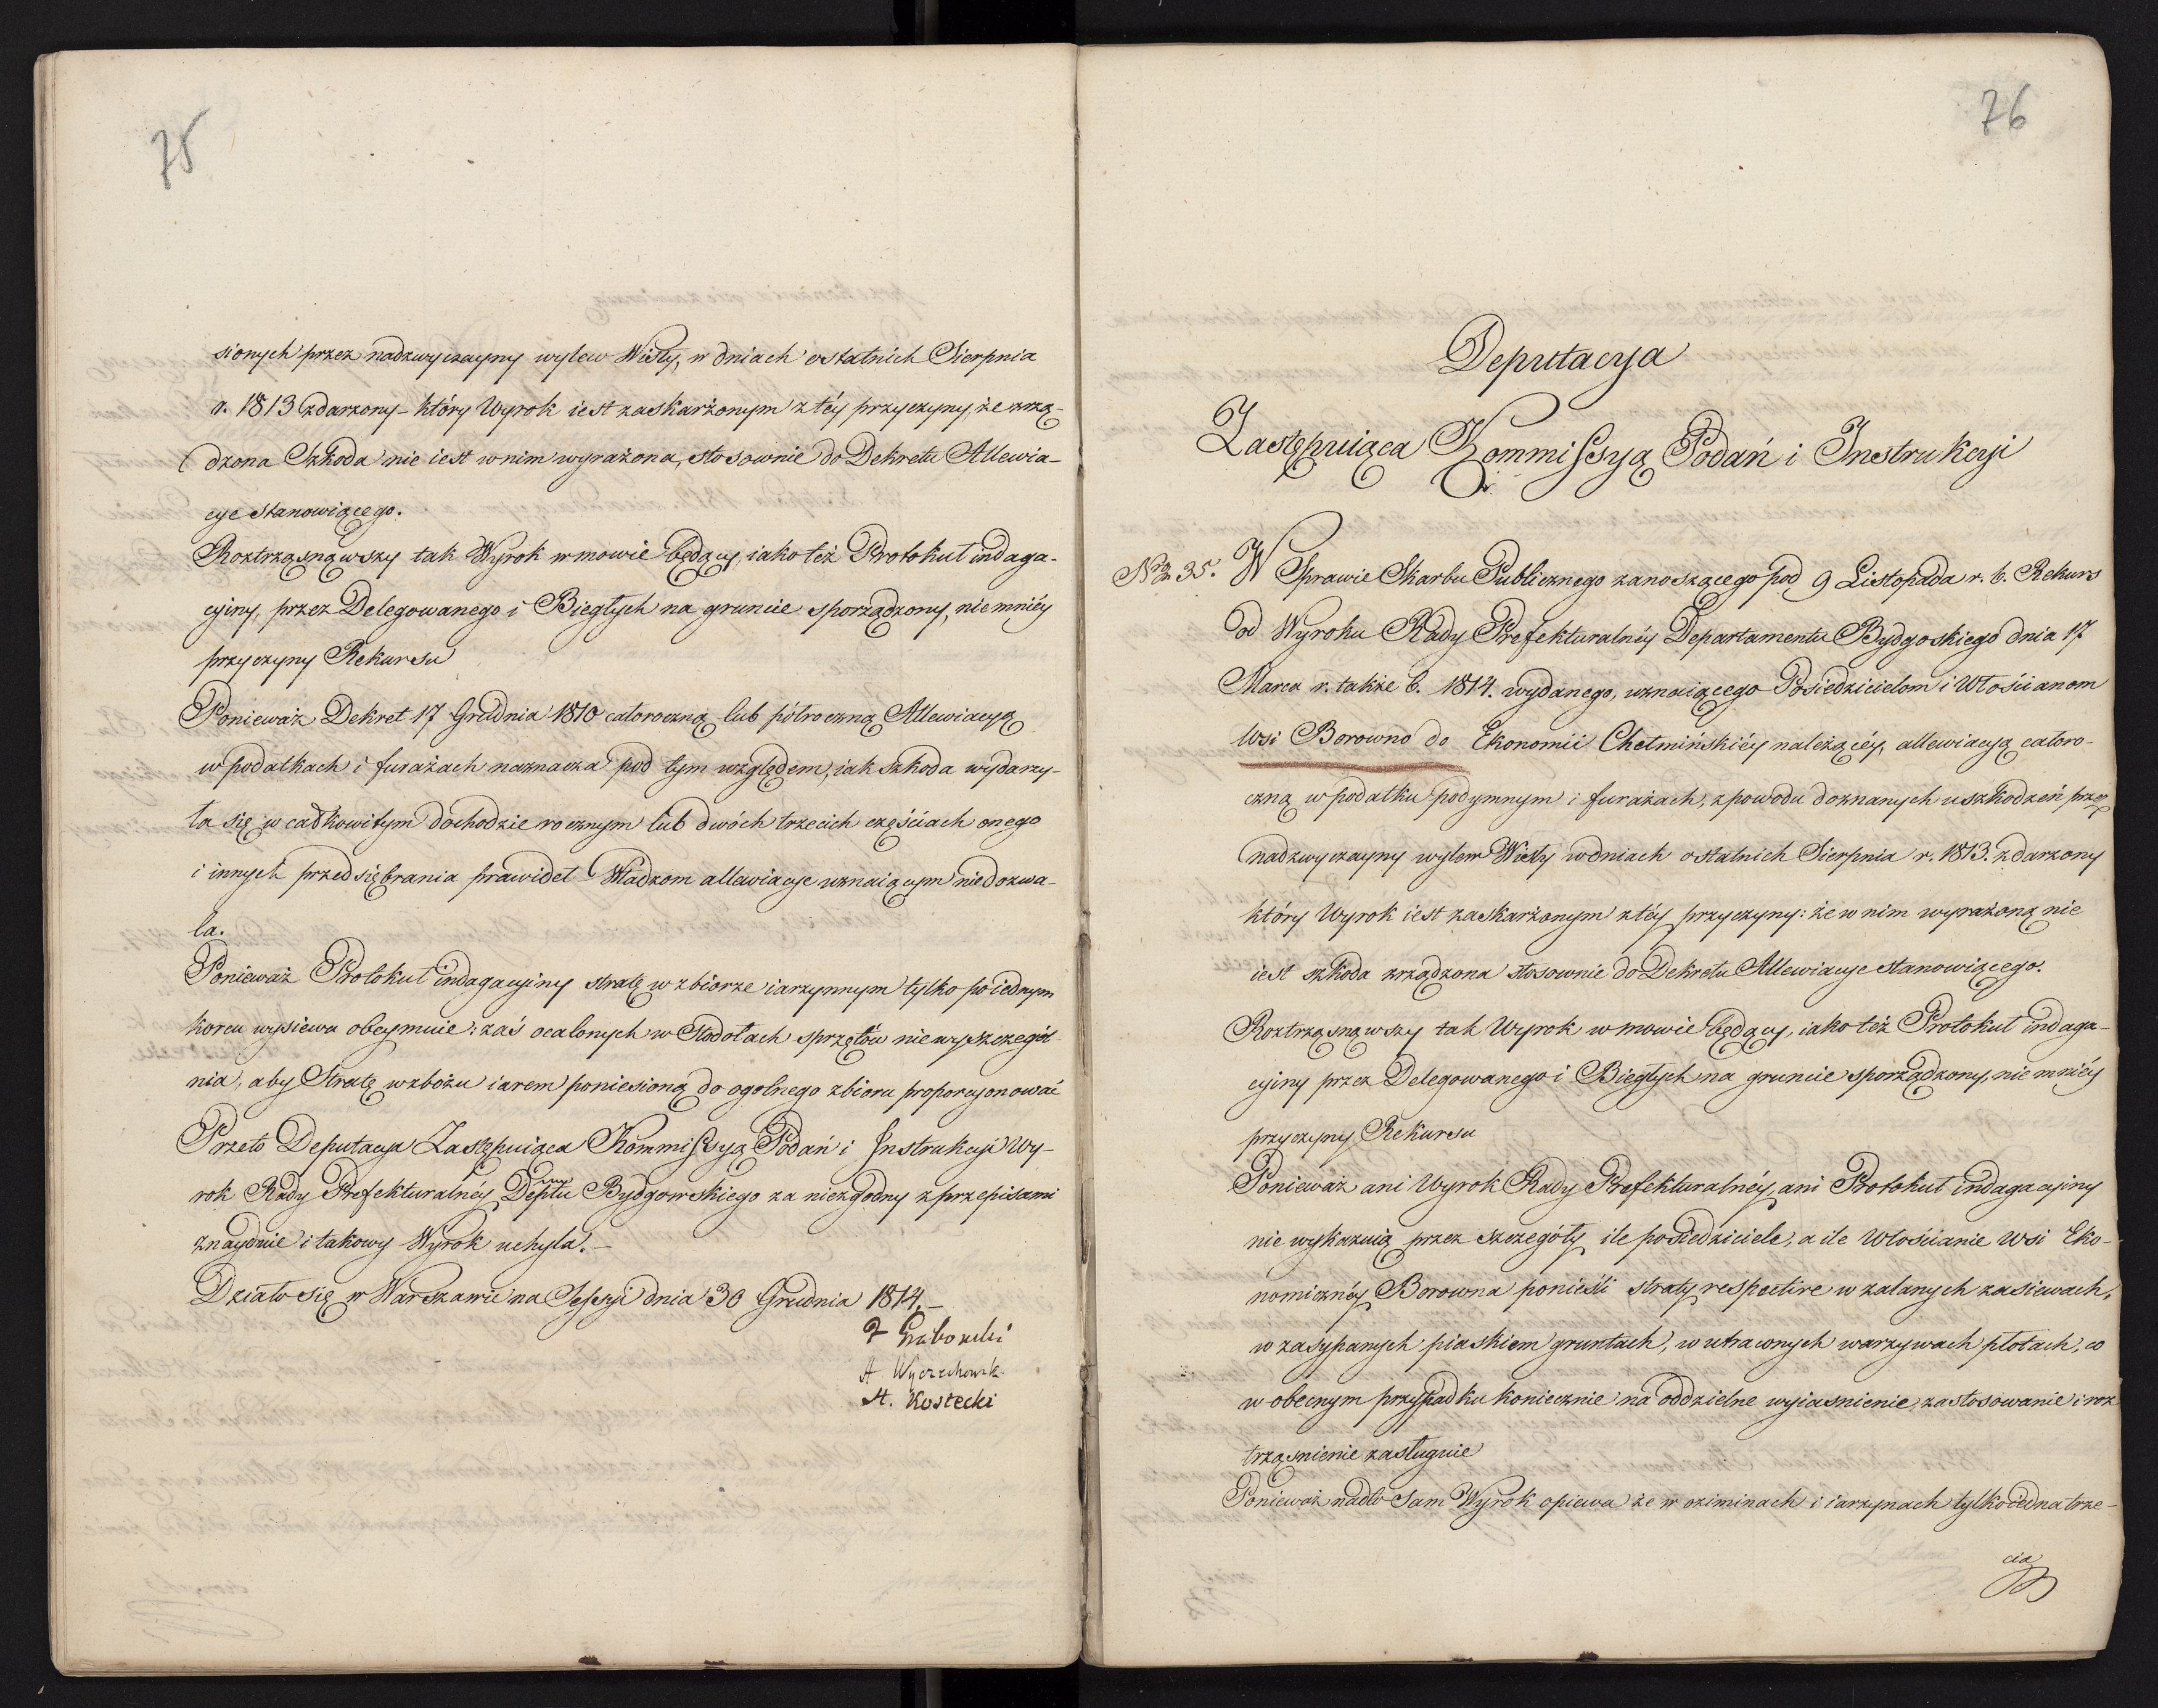 75
sionych przez nadzwyczayny wylew Wisły, w dniach ostatnich Sierpnia
r. 1813 zdarzony – który Wyrok iest zaskarżonym z téy przyczyny, że zrzą-
dzona Szkoda nie iest w nim wyrażona, stosownie do Dekretu Allewia-
cye stanowiącego.
Roztrząsnąwszy tak Wyrok w mowie będący, iako też Protokuł indaga-
cyiny, przez Delegowanego i Biegłych na gruncie sporządzony, niemniéy
przyczyny Rekursu
Ponieważ Dekret 17 Grudnia 1810 całoroczną lub półroczną Allewiacyą
w podatkach i furażach naznacza pod tym względem, iak szkoda wydarzy-
ła się w całkowitym dochodzie rocznym lub dwóch trzecich częściach onego
i innych przedsiębrania prawideł Władzom allewiacye uznaiącym niedozwa-
la.
Ponieważ Protokuł indagacyiny stratę w zbiorze iarzynnym tylko po iednym
korcu wysiewu obeymuie: zaś ocalonych w Stodołach sprzętów niewyszczegól-
nia, aby Stratę w zbożu iarem poniesioną do ogolnego zbioru proporcyonować
Przeto Deputacya Zastępuiąca Kommissyą Podań i Instrukcyi Wy-
rok Rady Prefekturalnéy Deptu Bydgowskiego za niezgodny z przepisami
znayduie i takowy Wyrok uchyla. –
Działo się w Warszawie na Sessyi dnia 30 Grudnia 1814. –
Grabowski
A Wyczechowsk
A. Kostecki
76
Deputacya
Zastępuiąca Kommissyą Podań i Instrukcyi
Nro 35. W Sprawie Skarbu Publicznego zanoszącego pod 9 Listopada r. b. Rekurs
od Wyroku Rady Prefekturalnéy Departamentu Bydgoskiego dnia 17
Marca r. także b. 1814. wydanego, uznaiącego Posiedzicielom i Włościanom
Wsi Borowno do Ekonomii Chełmińskiéy należącéy, allewiacyą całoro-
czną w podatku podymnym i furażach, z powodu doznanych uszkodzeń przez
nadzwyczayny wylew Wisły w dniach ostatnich Sierpnia r. 1813. zdarzony
który Wyrok iest zaskarżonym z téy przyczyny: że w nim wyrażoną nie
iest szkoda zrządzona stosownie do Dekretu Allewiacye stanowiącego.
Roztrząsnąwszy tak Wyrok w mowie będący, iako też Protokuł indaga-
cyiny przez Delegowanego i Biegłych na gruncie sporządzony, niemniéy
przyczyny Rekursu
Ponieważ ani Wyrok Rady Prefekturalnéy, ani Protokuł indagacyiny
nie wykazuią przez szczegóły ile posiedziciele, a ile Włościanie Wsi Eko-
nomicznéy Borowna ponieśli straty respective w zalanych zasiewach,
w zasypanych piaskiem gruntach, w utraconych warzywach płotach, co
w obecnym przypadku koniecznie na oddzielne wyiasnienie, zastosowanie i roz
trząsnienie zasługuie
Ponieważ nadto sam Wyrok opiewa że w oziminach i iarzynach tylko iedna trze-
cia